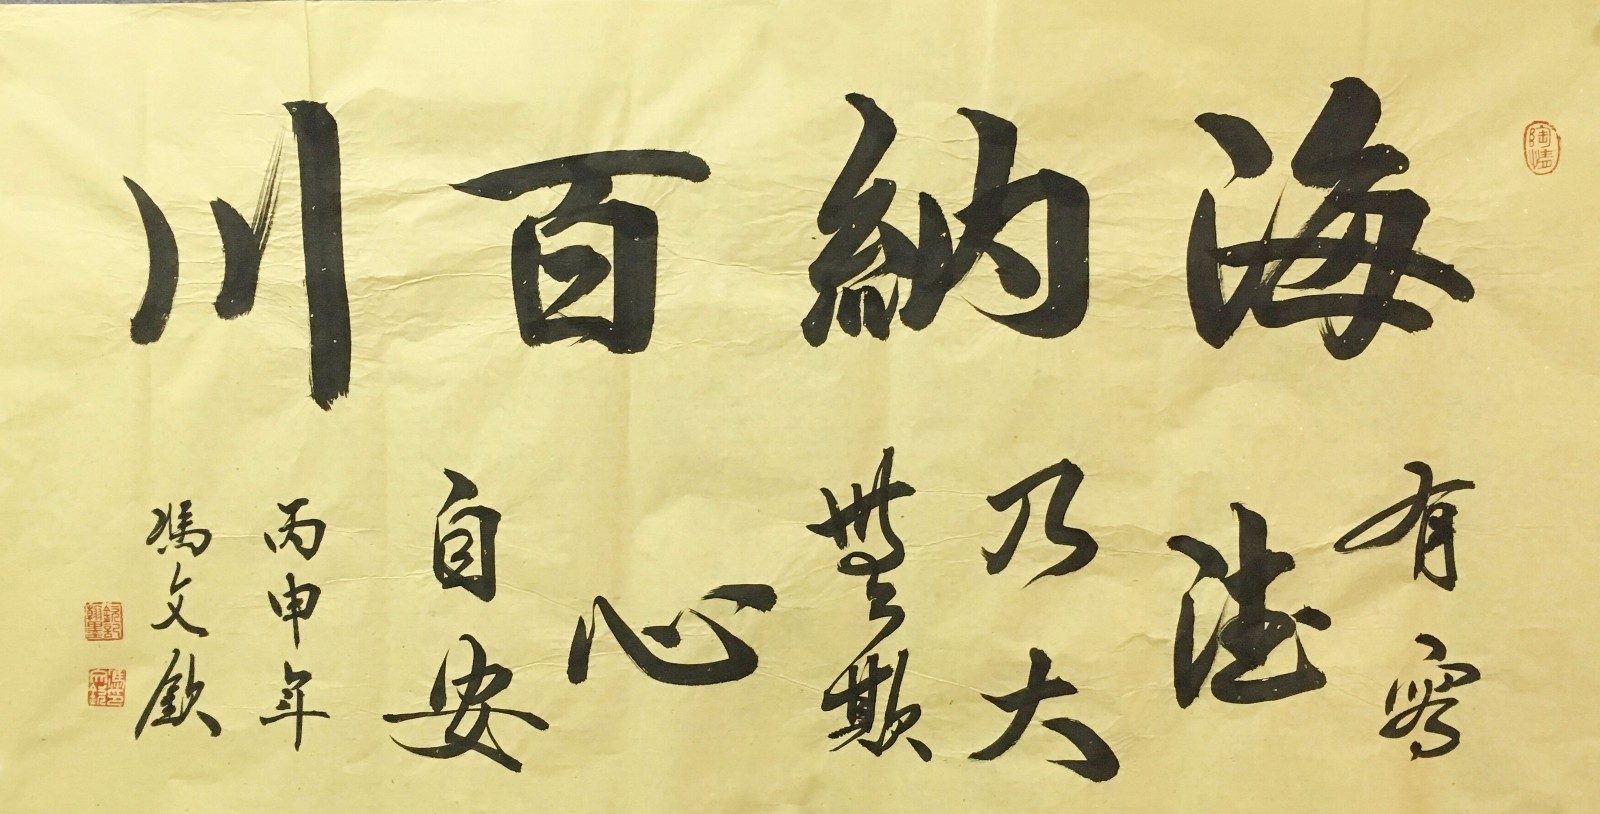 海納百川
有容德乃大
無欺心自安
丙申年
馮文欽
陶情